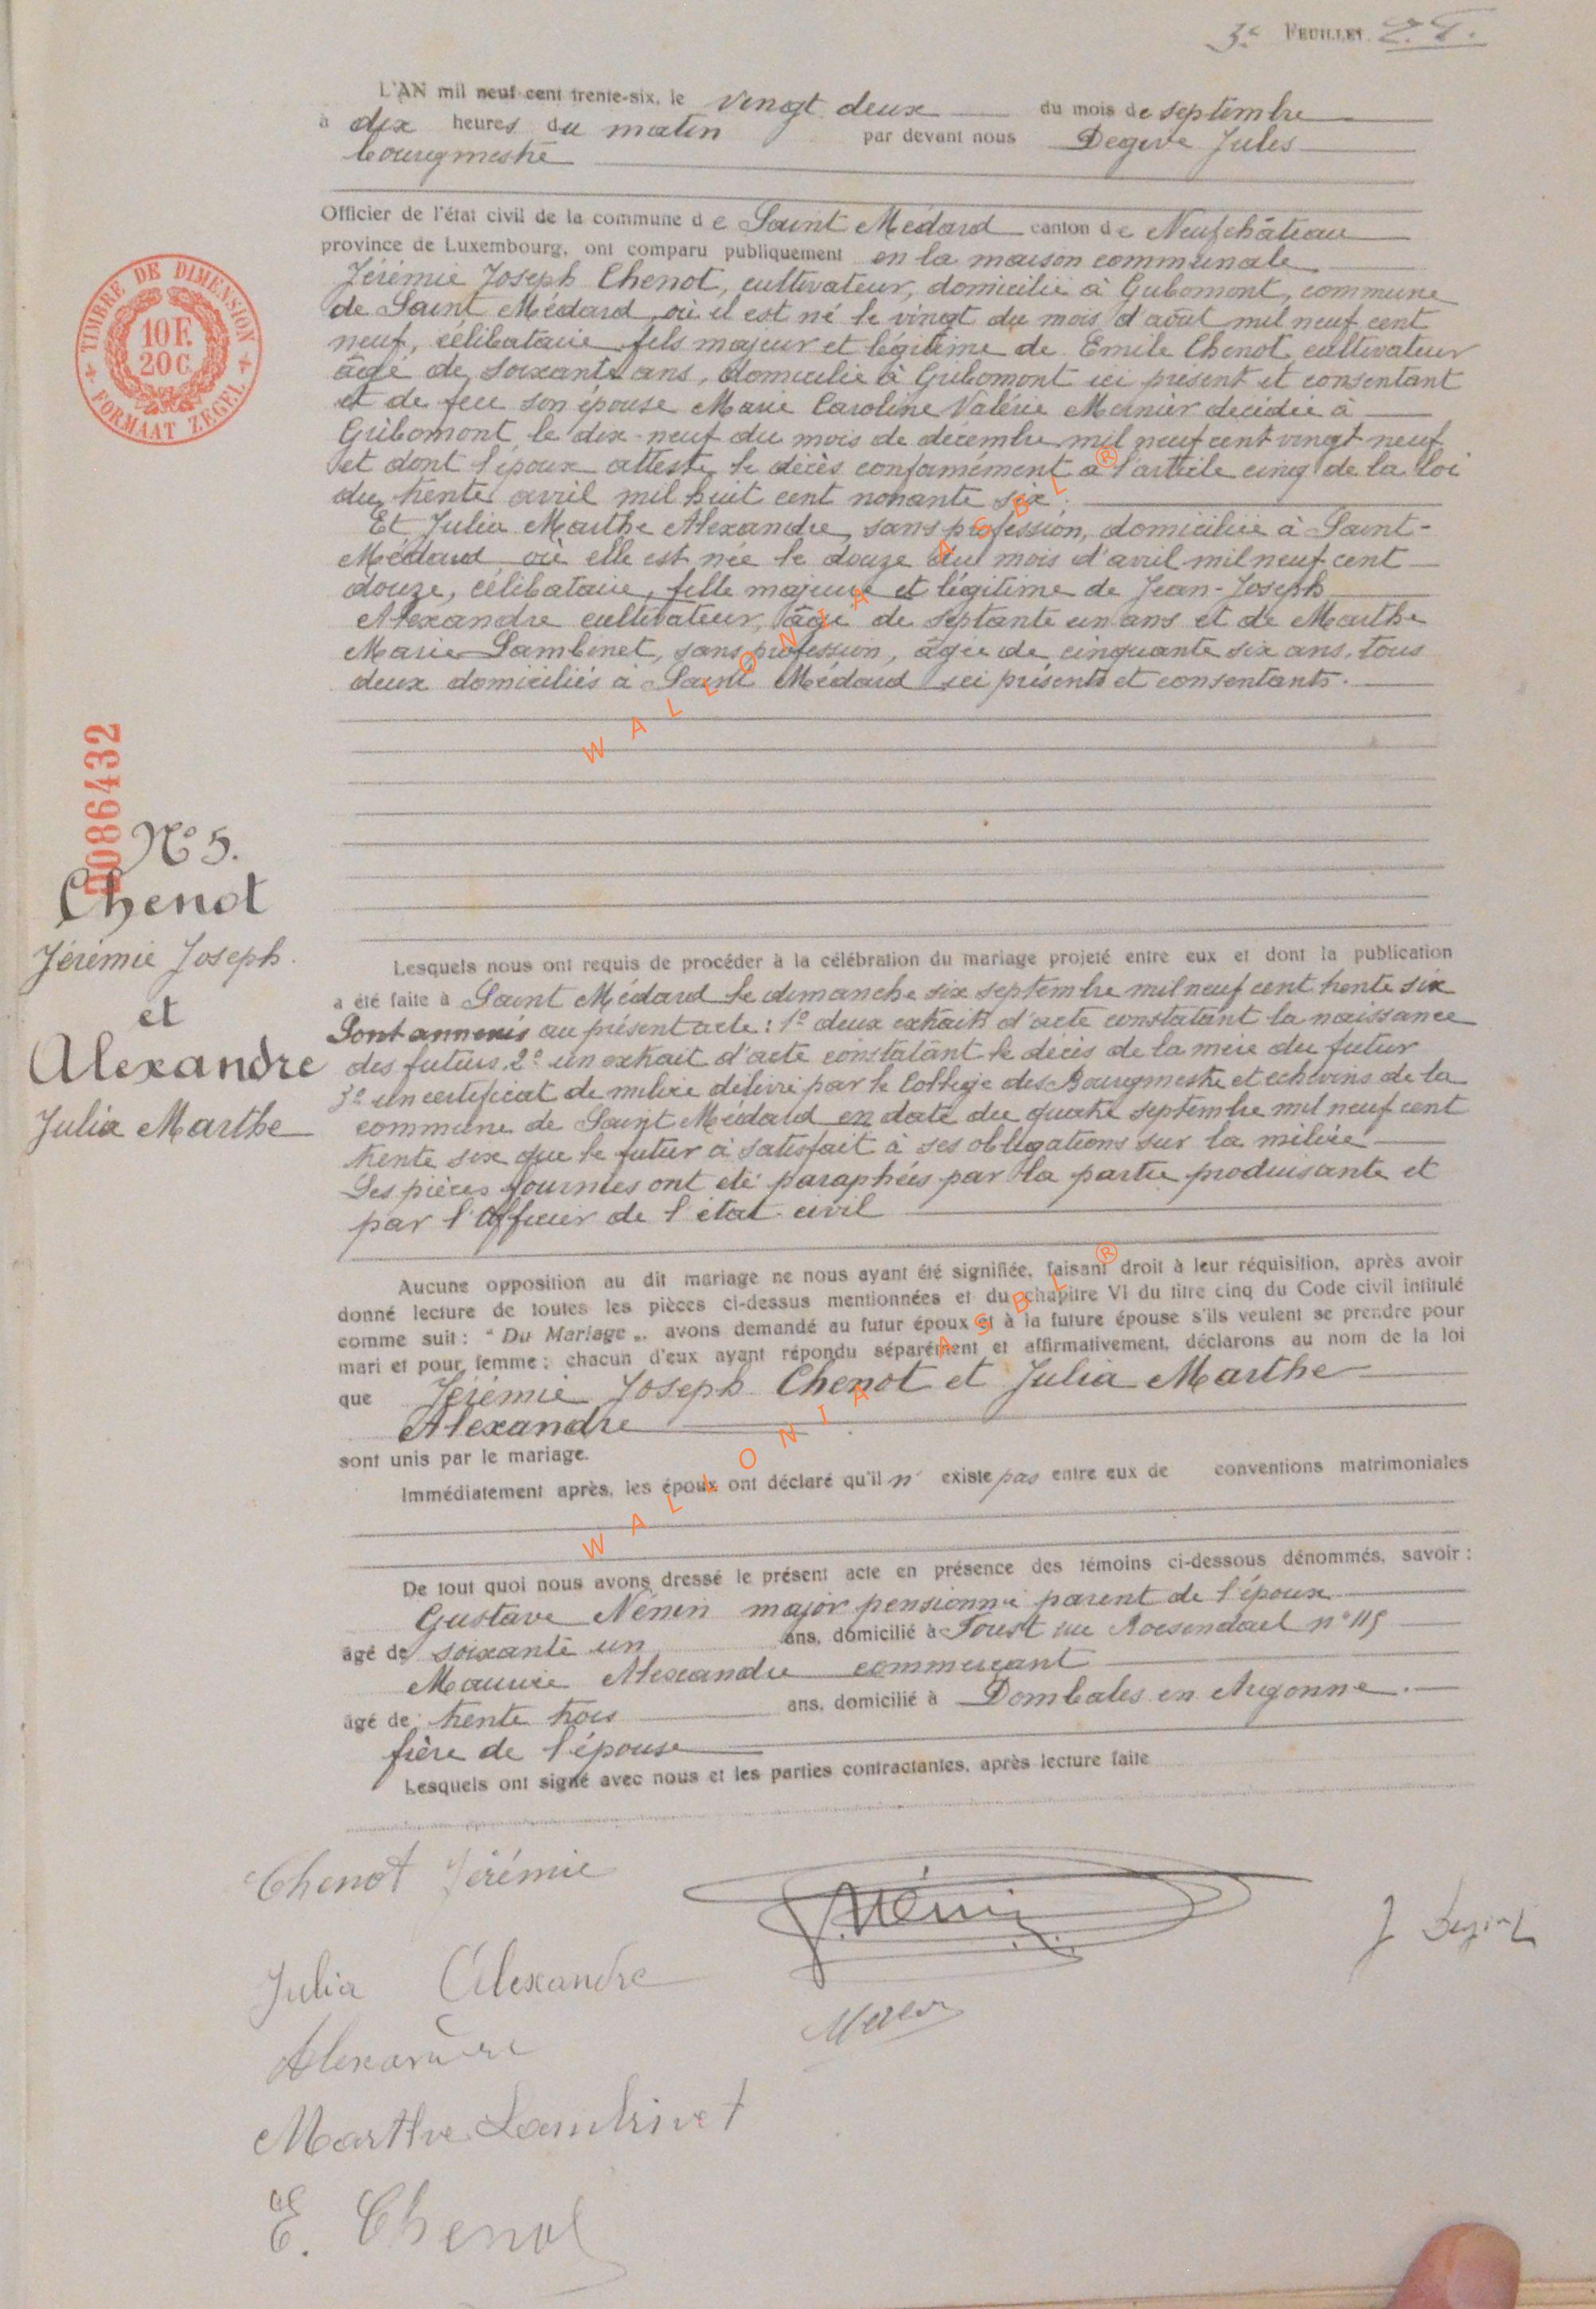 3e FEUILLET.
L'AN mil neuf cent trente-six, le vingt deux du mois de septembre
à dix heures du matin par devant nous Degive Jules
bourgmestre
Officier de l'état civil de la commune de Saint Médard canton de Neufchâteau
province de Luxembourg, ont comparu publiquement en la maison communale
Jérémie Joseph Chenot, cultivateur, domicilié à Gribomont, commune
de Saint Médard où il est né le vingt du mois d'août mil neuf cent
neuf, célibataire fils majeur et légitime de Emile Chenot cultivateur
âgé de soixante ans, domicilié à Gribomont ici présent et consentant
et de feue son épouse Marie Caroline Valérie Mernier décédée à
Gribomont le dix-neuf du mois de décembre mil neuf cent vingt neuf
et dont l'époux atteste le décès conformément à l'article cinq de la loi
du trente avril mil huit cent nonante six.
Et Julia Marthe Alexandre, sans profession, domiciliée à Saint-
Médard où elle est née le douze du mois d'avril mil neuf cent
douze, célibataire, fille majeure et légitime de Jean-Joseph
Alexandre cultivateur, âgé de septante un ans et de Marthe
Marie Lambinet, sans profession, âgée de cinquante six ans, tous
deux domiciliés à Saint Médard ici présents et consentants.
TIMBRE DE DIMENSION
10 F.
20 C.
FORMAAT ZEGEL
0086432
No 5.
Chenot
Jérémie Joseph.
et
Alexandre
Julia Marthe
Lesquels nous ont requis de procéder à la célébration du mariage projeté entre eux et dont la publication
a été faite à Saint Médard le dimanche six septembre mil neuf cent trente six
Sont annexés au présent acte: 1° deux extraits d'acte constatant la naissance
des futurs. 2° un extrait d'acte constatant le décès de la mère du futur
3° un certificat de milice délivré par le Collège des Bourgmestre et echevins de la
commune de Saint Médard en date du quatre septembre mil neuf cent
trente six que le futur a satisfait à ses obligations sur la milice
Les pièces fournies ont été paraphées par la partie produisante et
par l'Officier de l'état civil
Aucune opposition au dit mariage ne nous ayant été signifiée, faisant droit à leur réquisition, après avoir
donné lecture de toutes les pièces ci-dessus mentionnées et du chapitre VI du titre cinq du Code civil intitulé
comme suit : " Du Mariage „. avons demandé au futur époux et à la future épouse s'ils veulent se prendre pour
mari et pour femme ; chacun d'eux ayant répondu séparément et affirmativement, déclarons au nom de la loi
que Jérémie Joseph Chenot et Julia Marthe
Alexandre
sont unis par le mariage.
Immédiatement après, les époux ont déclaré qu'il n' existe pas entre eux de conventions matrimoniales
De tout quoi nous avons dressé le présent acte en présence des témoins ci-dessous dénommés, savoir :
Gustave Nénin major pensionné parent de l'époux
âgé de soixante un ans, domicilié à Forest rue Roosendael n° 115
Maurice Alexandre commerçant
âgé de trente trois ans, domicilié à Dombales en Argonne.
frère de l'épouse
Lesquels ont signé avec nous et les parties contractantes, après lecture faite
Chenot Jérémie
Julia Alexandre
Alexandre
Marthe Lambinet
E. Chenot
WALLONIA ASBL ®
WALLONIA ASBL ®